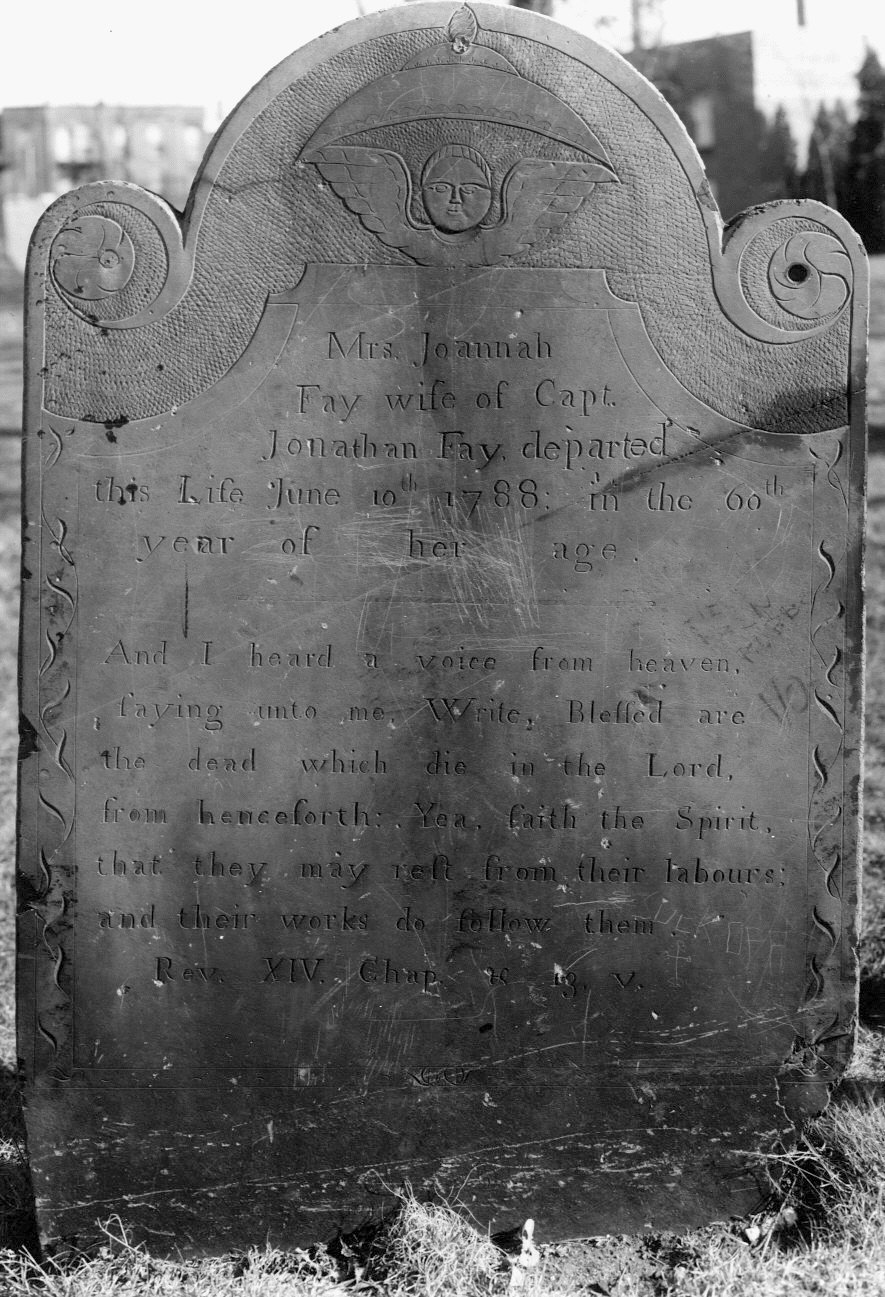 Mrs. Joannah
Fay wife of Capt.
Jonathan Fay, departed
this Life June 10th 1788; in the 60th
year of her age.
And I heard a voice from heaven,
ſaying unto me, Write, Bleſſed are
the dead which die in the Lord,
from henceforth: Yea, ſaith the Spirit,
that they may reſt from their labours;
and their works do follow them.
Rev. XIV. Chap. & 13. v.